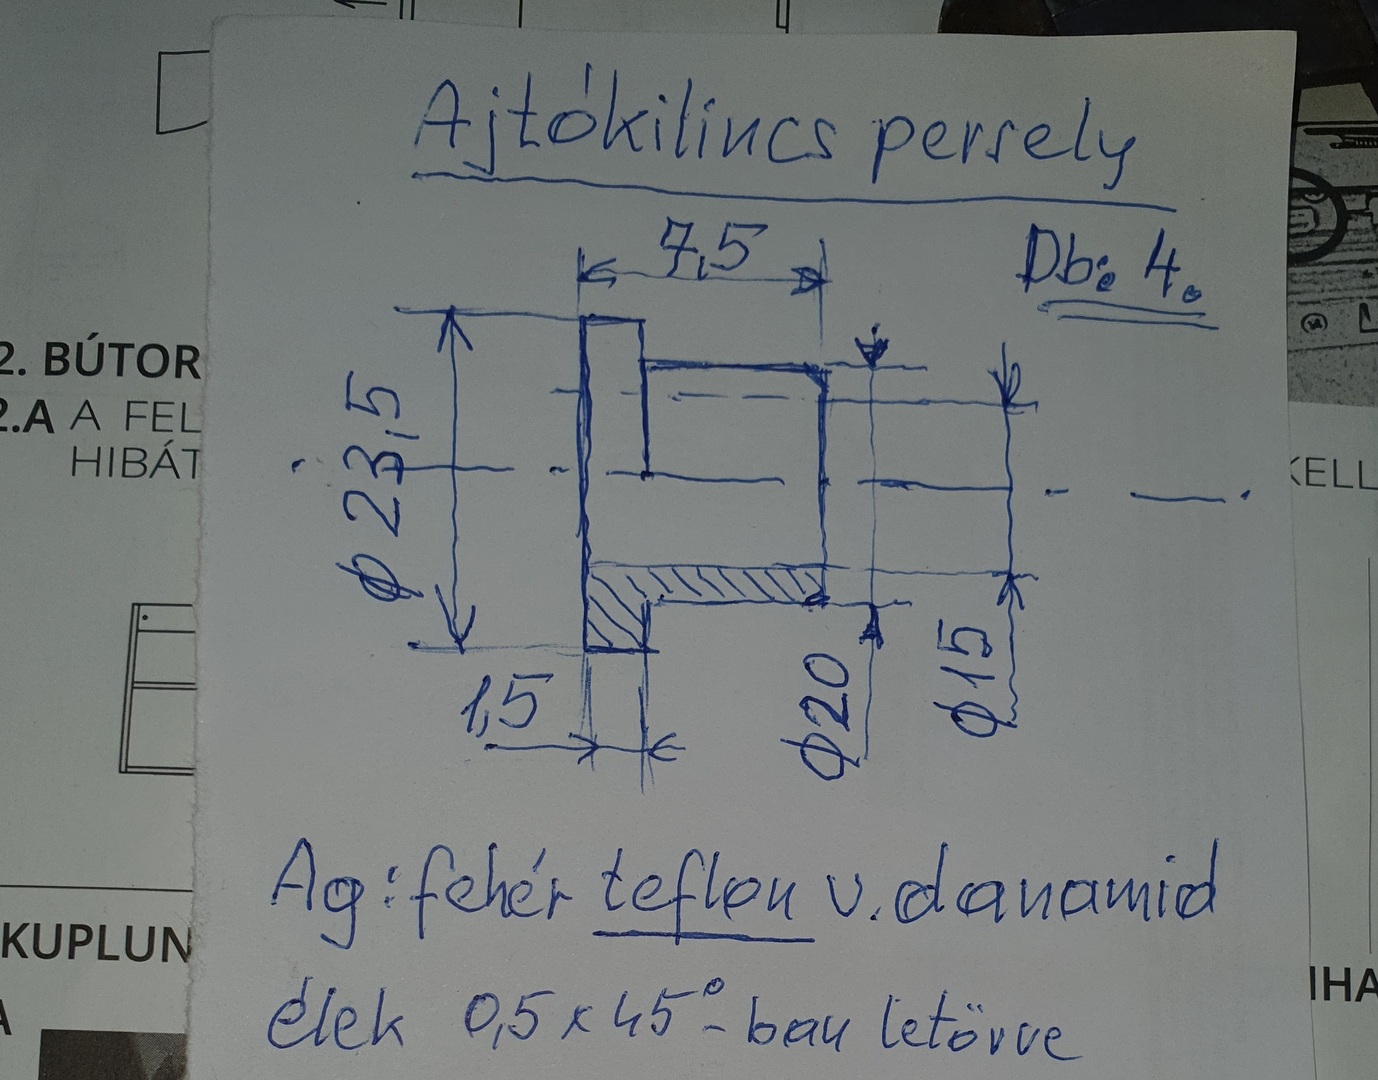 Ajtókilincs persely
7,5
Db: 4.
2. BÚTOR
2.A A FEL
HIBÁT
KELL
ϕ 23,5
1,5
ϕ20
ϕ15
Ag: fehér teflon v. danamid
KUPLUN
IHA
élek 0,5 x 45°-ban letörve
A